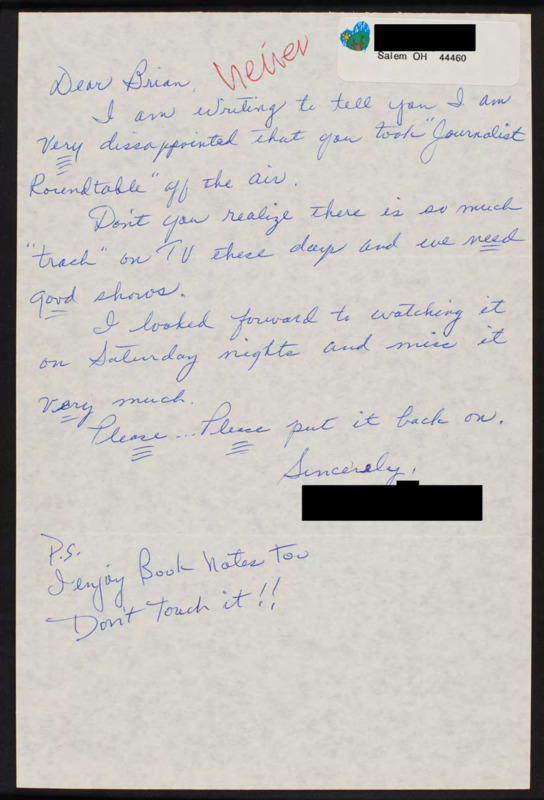 Salem OH 44460
Dear Brian,
I am writing to tell you I am
very dissappointed that you took "Journalist
Roundtable" off the air.
Don't you realize there is so much
"trash" on TV these days and we need
good shows.
I looked forward to watching it
on Saturday nights and miss it
very much.
Please...Please put it back on.
Sincerely,
P.S.
I enjoy Book Notes too
Don't Touch it!!